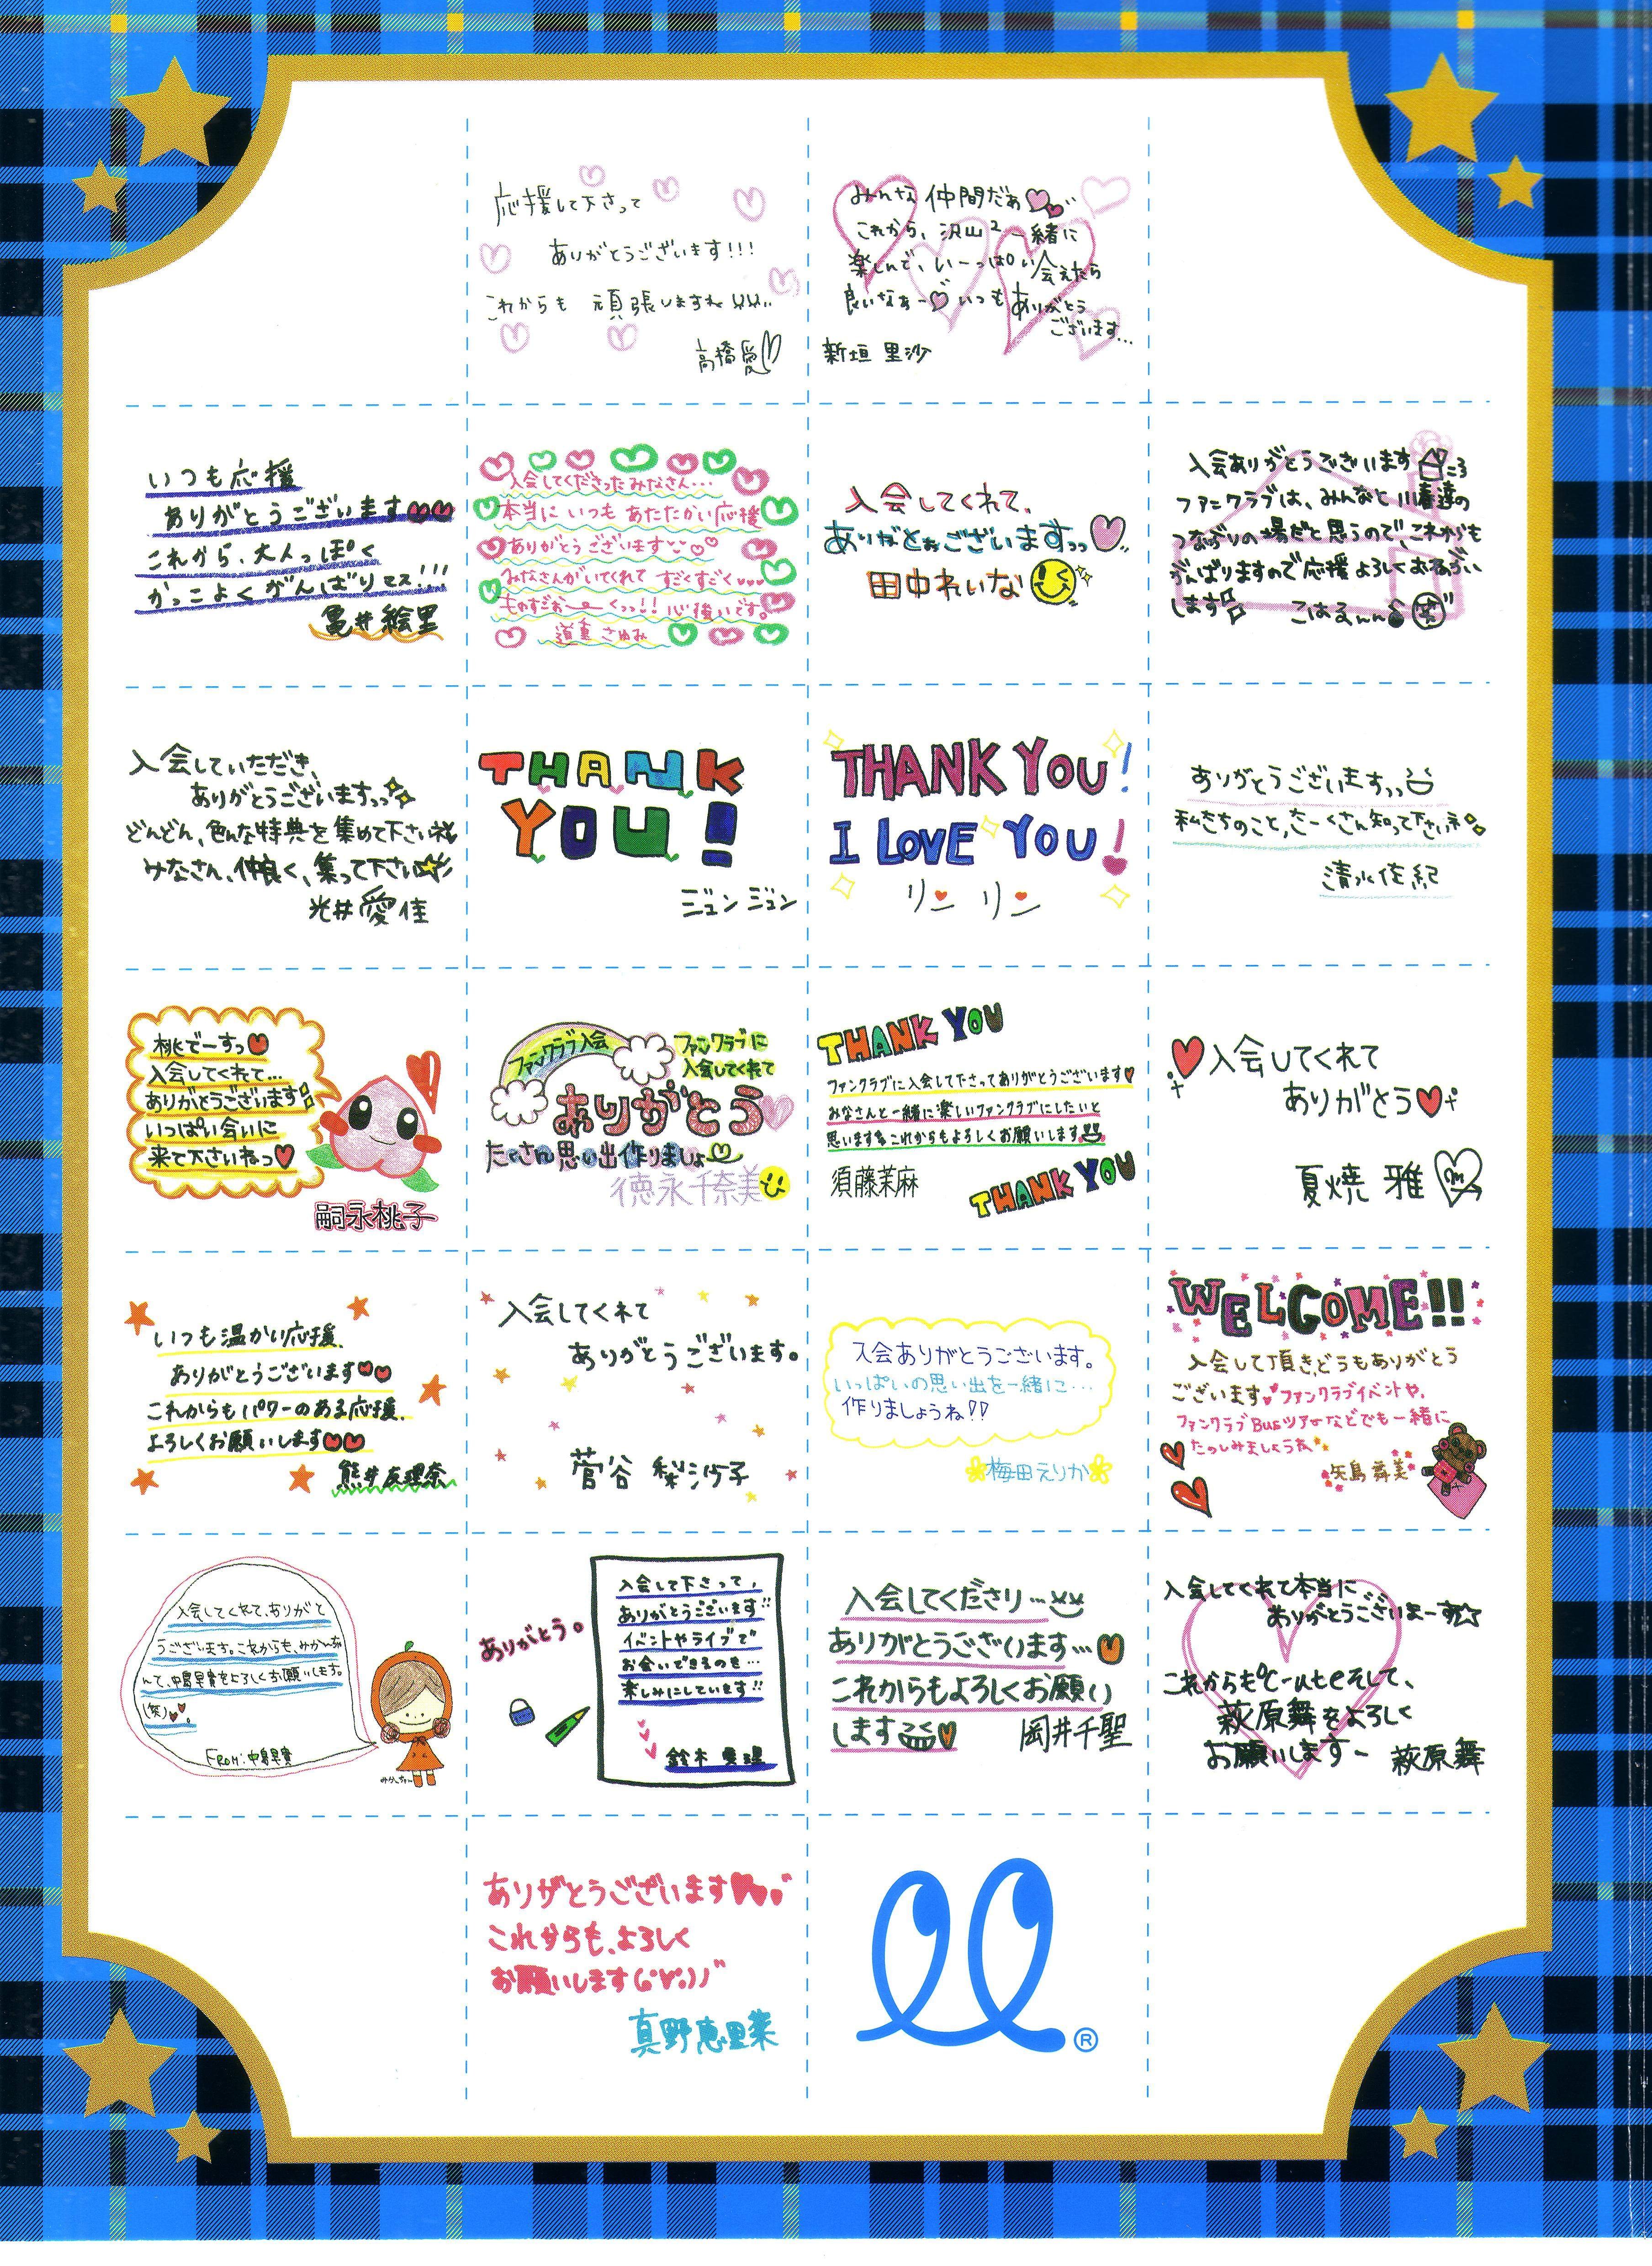 応援して下さって
ありがとうございます!!!
これからも 頑張りますね
高橋愛
みんな仲間だぁ
これから、沢山2一緒に
楽しんで、いーっぱい会えたら
良いなぁー いつもありがとう
ございます...
新垣 里沙
いつも応援
ありがとうございます
これから、大人っぽく
かっこよくがんばりマス!!!
亀井絵里
入会してくださったみなさん...
本当に いつも あたたかい応援
ありがとうございます
みなさんがいてくれて すごくすごく
ものすごぉーくっっ!! 心強いです。
道重 さゆみ
入会してくれて、
ありがとぉございますっっ
田中れいな
入会ありがとうございます
ファンクラブは、みんなと小春達の
つながりの場だと思うので、これからも
がんばりますので応援よろしくおねがい
します
こはるんん
入会していただき、
ありがとうございますっっ
どんどん、色んな特典を集めて下さいね
みなさん、仲良く、集って下さい
光井愛佳
THANK
YOU!
ジュン ジュン
THANK YOU!
I LOVE YOU!
リン リン
ありがとうございますっっ
私たちのこと、たーくさん知って下さいネ
清水佐紀
桃でーすっ
入会してくれて...
ありがとうございます
いっぱい会いに
来て下さいねっ
嗣永桃子
ファンクラブ入会
ファンクラブに
入会してくれて
ありがとう
たくさん思い出作りましょ
徳永千奈美
THANK YOU
ファンクラブに入会して下さってありがとうございます
みなさんと一緒に楽しいファンクラブにしたいと
思います これからもよろしくお願いします
須藤茉麻
THANK YOU
入会してくれて
ありがとう
夏焼 雅
いつも温かい応援、
ありがとうございます
これからもパワーのある応援、
よろしくお願いします
熊井友理奈
入会してくれて
ありがとうございます。
菅谷 梨沙子
入会ありがとうございます。
いっぱいの思い出を一緒に...
作りましょうね!!
梅田えりか
WELCOME!!
入会して頂き、どうもありがとう
ございます ファンクラブイベントや、
ファンクラブBusツアーなどでも一緒に
たのしみましょうね
矢島舞美
入会してくれて、ありがと
うございます。これからも、みかーちゃ
んで、中島早貴をよろしくお願いします。
(笑)
FROM:中島早貴
みかーちゃん
ありがとう。
入会して下さって、
ありがとうございます!!
イベントやライブで
お会いできるのを...
楽しみにしています!!
鈴木 愛理
入会してくださり...
ありがとうございます...
これからもよろしくお願い
します
岡井千聖
入会してくれて本当に...
ありがとうございまーす☆
これからも℃-uteそして、
萩原舞をよろしく
お願いします-
萩原舞
ありがとうございます
これからも、よろしく
お願いします
真野恵里菜
®